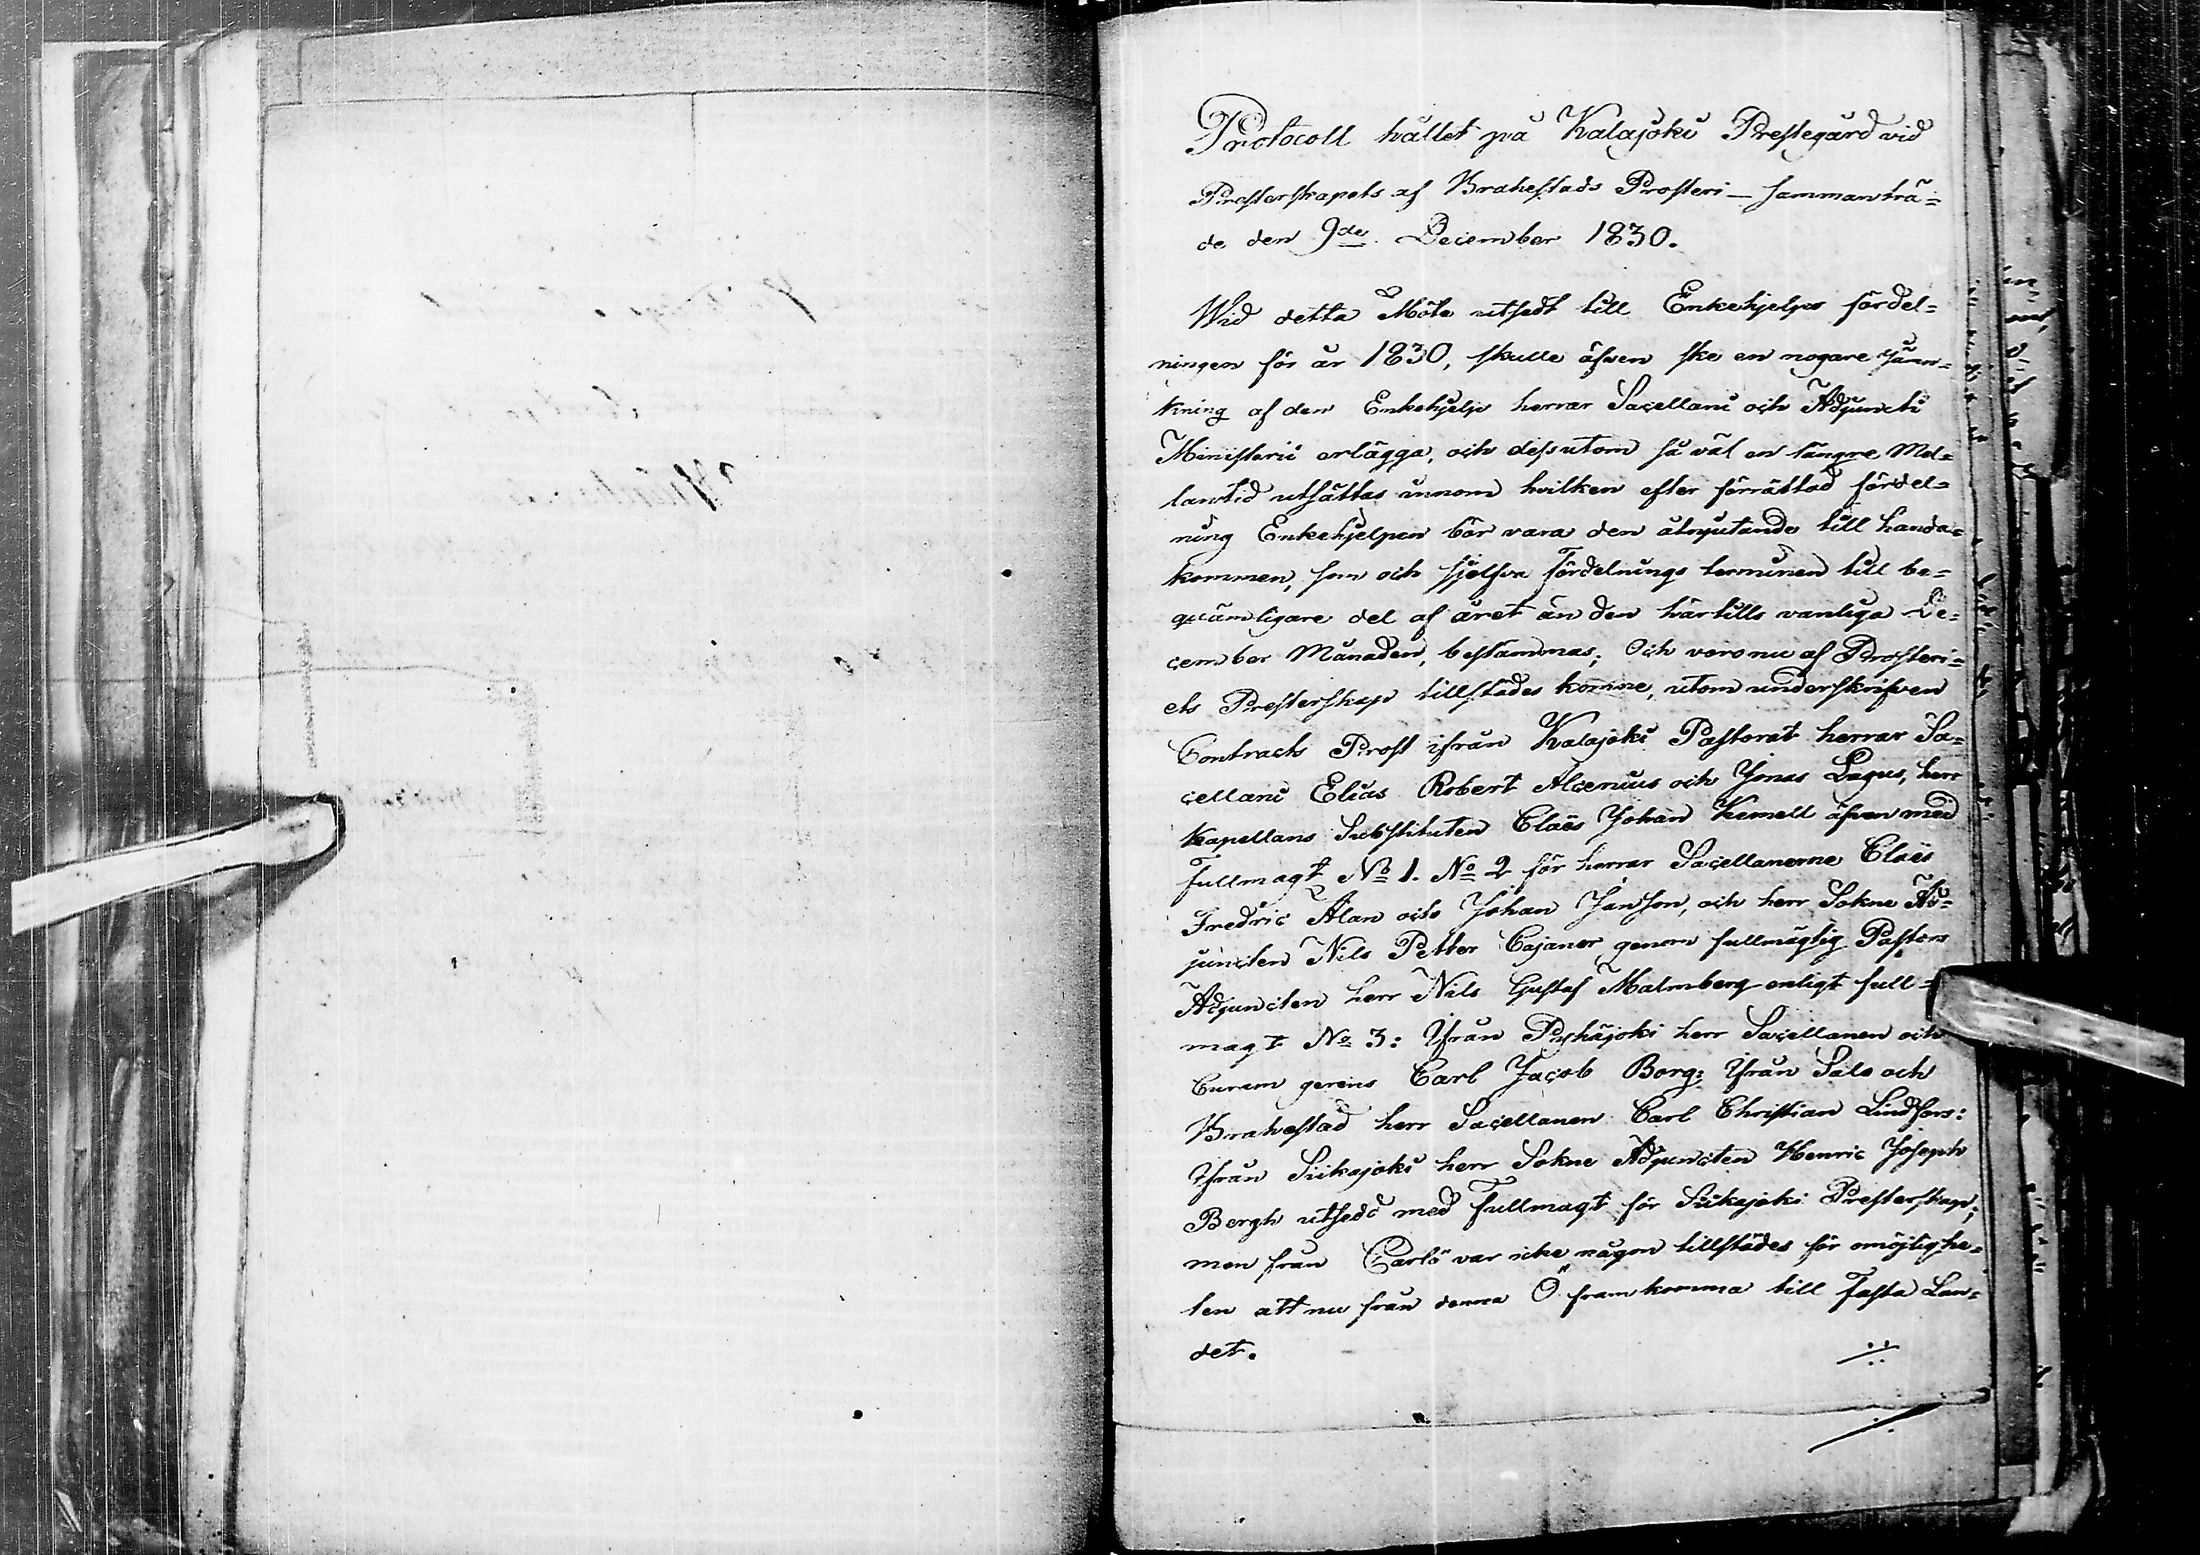 Protocoll hållet på Kalajoki Prestegård vid
Presterskapets af Brahestads Prosteri – sammanträ=
de den 9de December 1830.
Wid detta Möte utsedt till Enkehjelps fördel=
ningen för år 1830, skulle äfven ske en nogare jäm=
kning af den Enkehjelp herrar Sacellani och Adjuncti
Ministerii erlägga, och dessutom så väl en längre Mel=
lantid utsättas innom hvilken efter förrättad fördel=
ning Enkehjelpen bör vara den åtnjutande till handa=
kommen, som och sjelfva Fördelnings terminen till be=
qvämligare del af året än den härtills vanliga De=
cember Månaden, bestämmas; Och voro nu af Prosteri=
ets Presterskap tillstädes komne, utom underskrifven
Contracts Prost ifrån Kalajoki Pastorat herrar Sa=
cellani Elias Robert Alcenius och Jonas Lagus, herr
Kapellans Substituten Claës Johan Kemell äfven med
Fullmagt No 1. No 2 för herrar Sacellanerne Claës
Fredric Alan och Johan Janson, och herr Sokne Ad=
juncten Nils Petter Cajaner genom fullmägtig Pastors
Adjuncten herr Nils Gustaf Malmberg enligt full=
magt No 3: Ifrån Pyhäjoki herr Sacellanen och
Curam gerens Carl Jacob Borg: Ifrån Salo och
Brahestad herr Sacellanen Carl Christian Lindfors:
Ifrån Siikajoki herr Sokne Adjuncten Henric Joseph
Bergh utsedd med Fullmagt för Siikajoki Presterskap;
men från Carlö var icke någon tillstädes för omöjlighe=
ten att nu från denna Ö framkomma till Fasta Lan=
det.